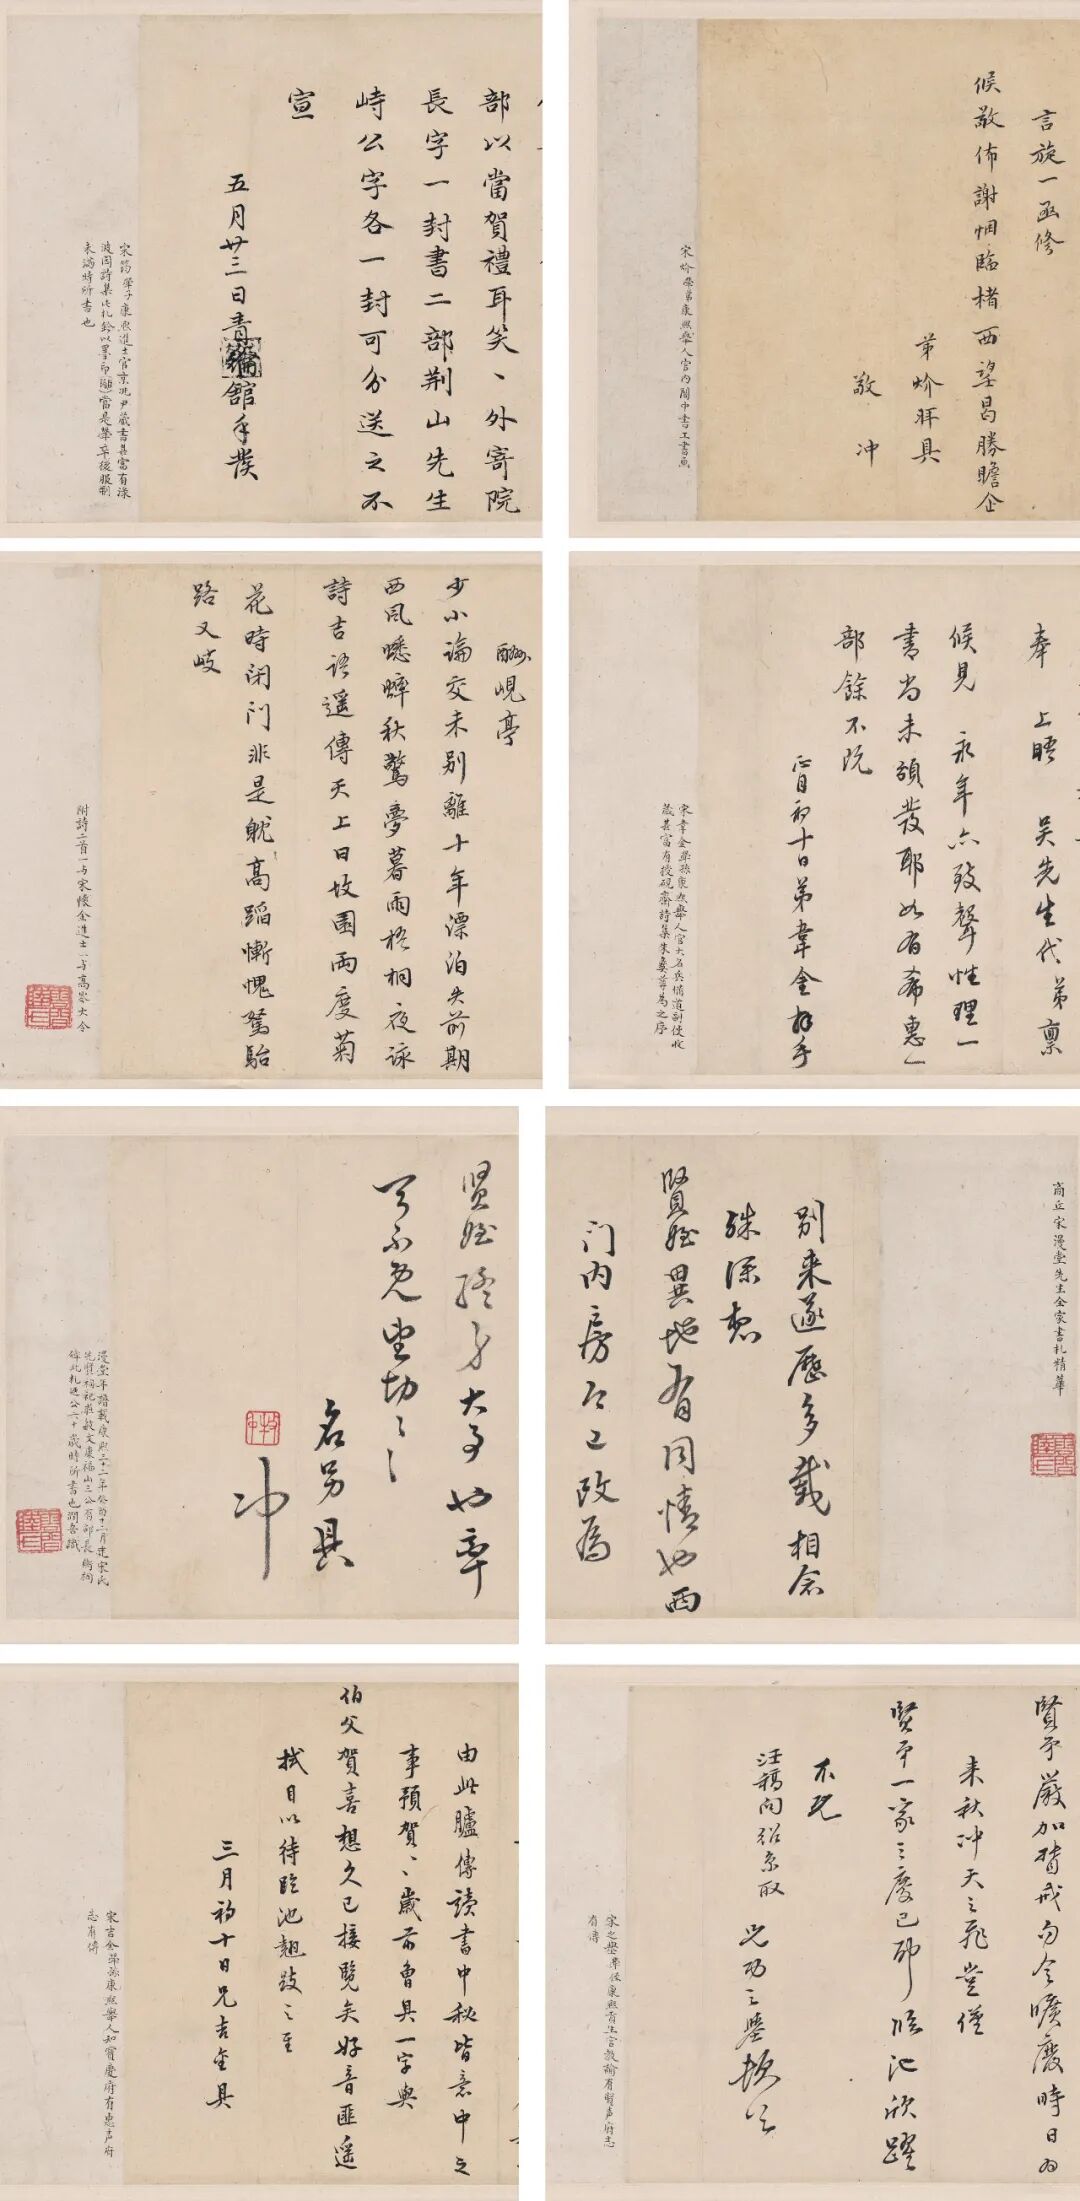 部以當賀禮耳笑、外寄院
長字一封書二部荆山先生
峙公字各一封可分送之不
宣
五月廿三日青綸館手發
宋筠犖子康熙進士官京兆尹藏書甚富有淥
波園詩集此札鈐以墨印當是犖卒後服制
未滿時所書也
言旋一函修
候敬佈謝悃臨楮西望曷勝瞻企
弟炌拜具
敬 冲
宋炌犖弟康熙舉人官内閣中書工書画
酬峴亭
少小論交未别離十年漂泊失前期
西風蟋蟀秋驚夢暮雨梧桐夜詠
詩吉語遥傳天上日故園兩度菊
花時閉門非是躭高蹈慚愧駑駘
路又岐
附詩二首一与宋懷金進士一与高岑大令
奉 上晤 吴先生代弟禀
候見 永年亦致聲性理一
書尚未頒發耶如有希惠一
部餘不既
正月初十日弟韋金拜手
宋韋金犖孫康熙舉人官大名兵備道副使收
藏甚富有授硯齋詩集朱彝尊為之序
商丘宋漫堂先生全家書札精華
别来遂歷多載相念
殊深想
賢姪異地有同情也西
门内房已上改為
賢姪終身大事也率
不免望切之
名另具
冲
漫堂年譜載康熙三十二年癸酉十二月建宋氏
先賢祠祀莊敏文康福山三公有部長衔祠
餘此札迺公六十歲時所書也潤吾識
由此臚傳讀書中秘皆意中之
事預賀、歲前曾具一字與
伯父賀喜想久已接覽矣好音匪遥
拭目以待臨池翹跂之至
三月初十日兄吉金具
宋吉金犖孫康熙舉人知寶慶府有惠声府
志有傳
賢弟嚴加督戒勿令曠廢時日為
来秋冲天之飛豈僅
賢弟一家之慶已耶臨池欣躍
不既
汪稿向紹京取 兄功之壂頓首
宋之壂犖侄康熙貢生官教諭有賢声府志
有傳